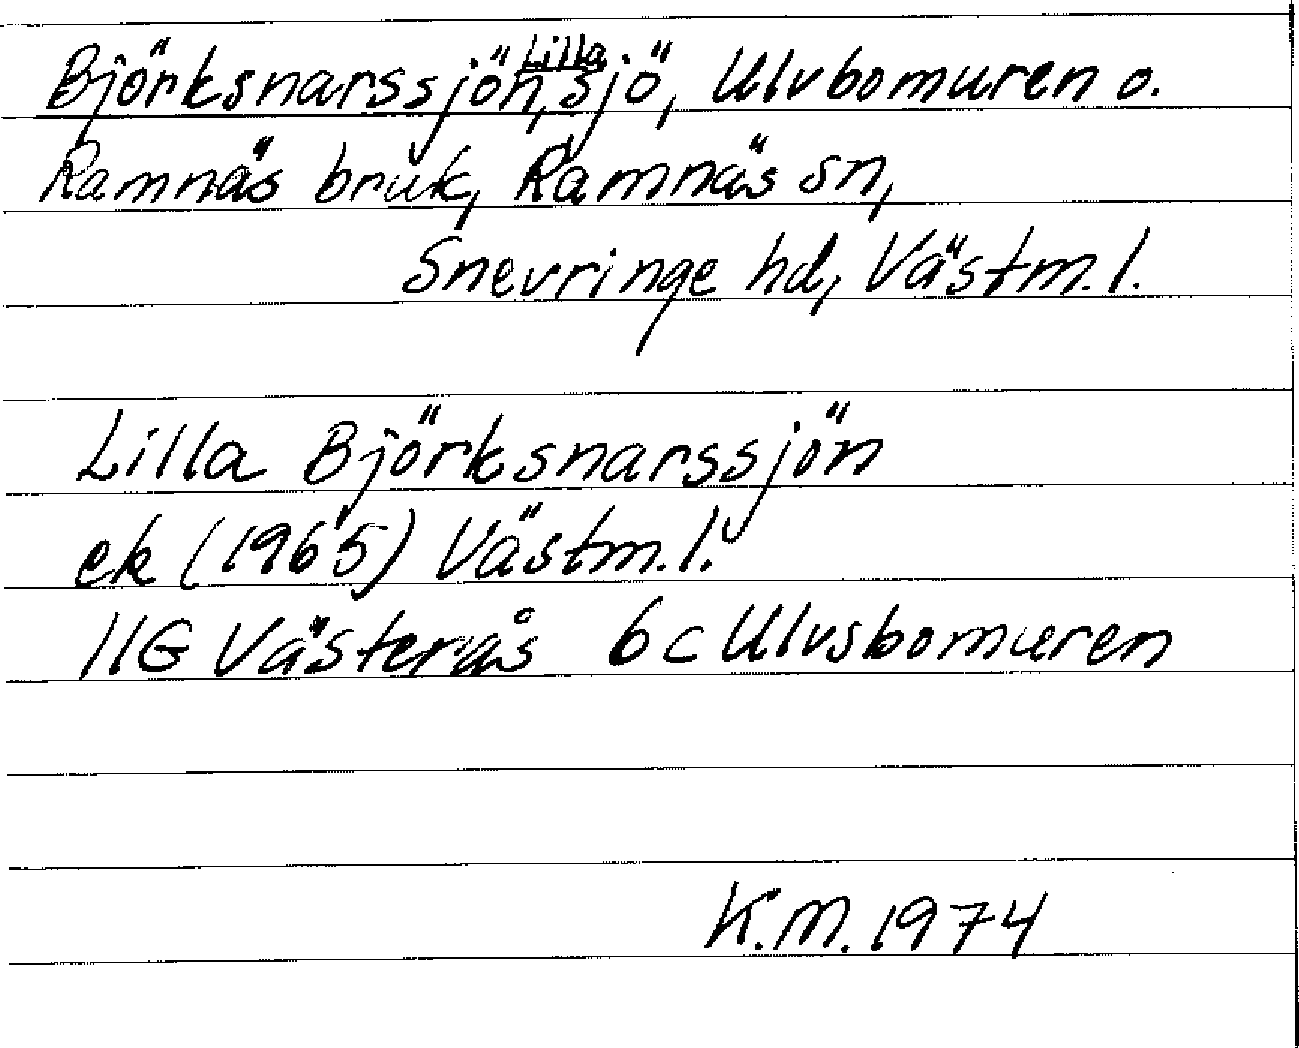 Björksnarssjön, Lilla, sjö, Ulvbomuren o.
Ramnäs bruk, Ramnäs sn,
Snevringe hd, Västm.l.
Lilla Björksnarssjön
ek (1965) Västm.l.
11G Västerås 6c Ulvsbomuren
K.M. 1974